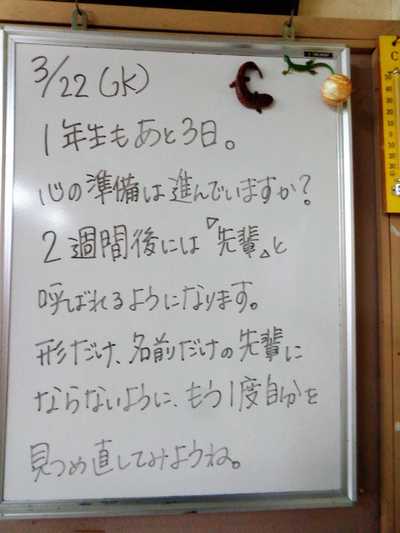 3/22 (GK)
1年生もあと3日。
心の準備は進んでいますか?
2週間後には『先輩』と
呼ばれるようになります。
形だけ、名前だけの先輩に
ならないように、もう1度自分を
見つめ直してみようね。
C
50